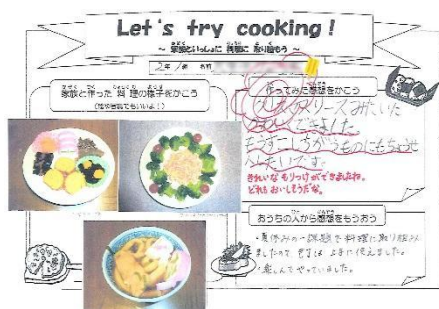 Let's try cooking!
～家族といっしょに 料理に 取り組もう～
2年 1組 名前
家族と作った 料理の様子をかこう
(絵や写真でもいいよ!)
作ってみた感想をかこう
クリスマスリースみたいに
できました。
もうすこしちがうものにもちょうせ
んしたいです。
きれいな もりつけができましたね。
どれも おいしそうだな。
おうちの人から感想をもらおう
・夏休みの一課題で料理に取り組み
ましたので 包丁は 上手に使えました。
・楽しんでやっていました。